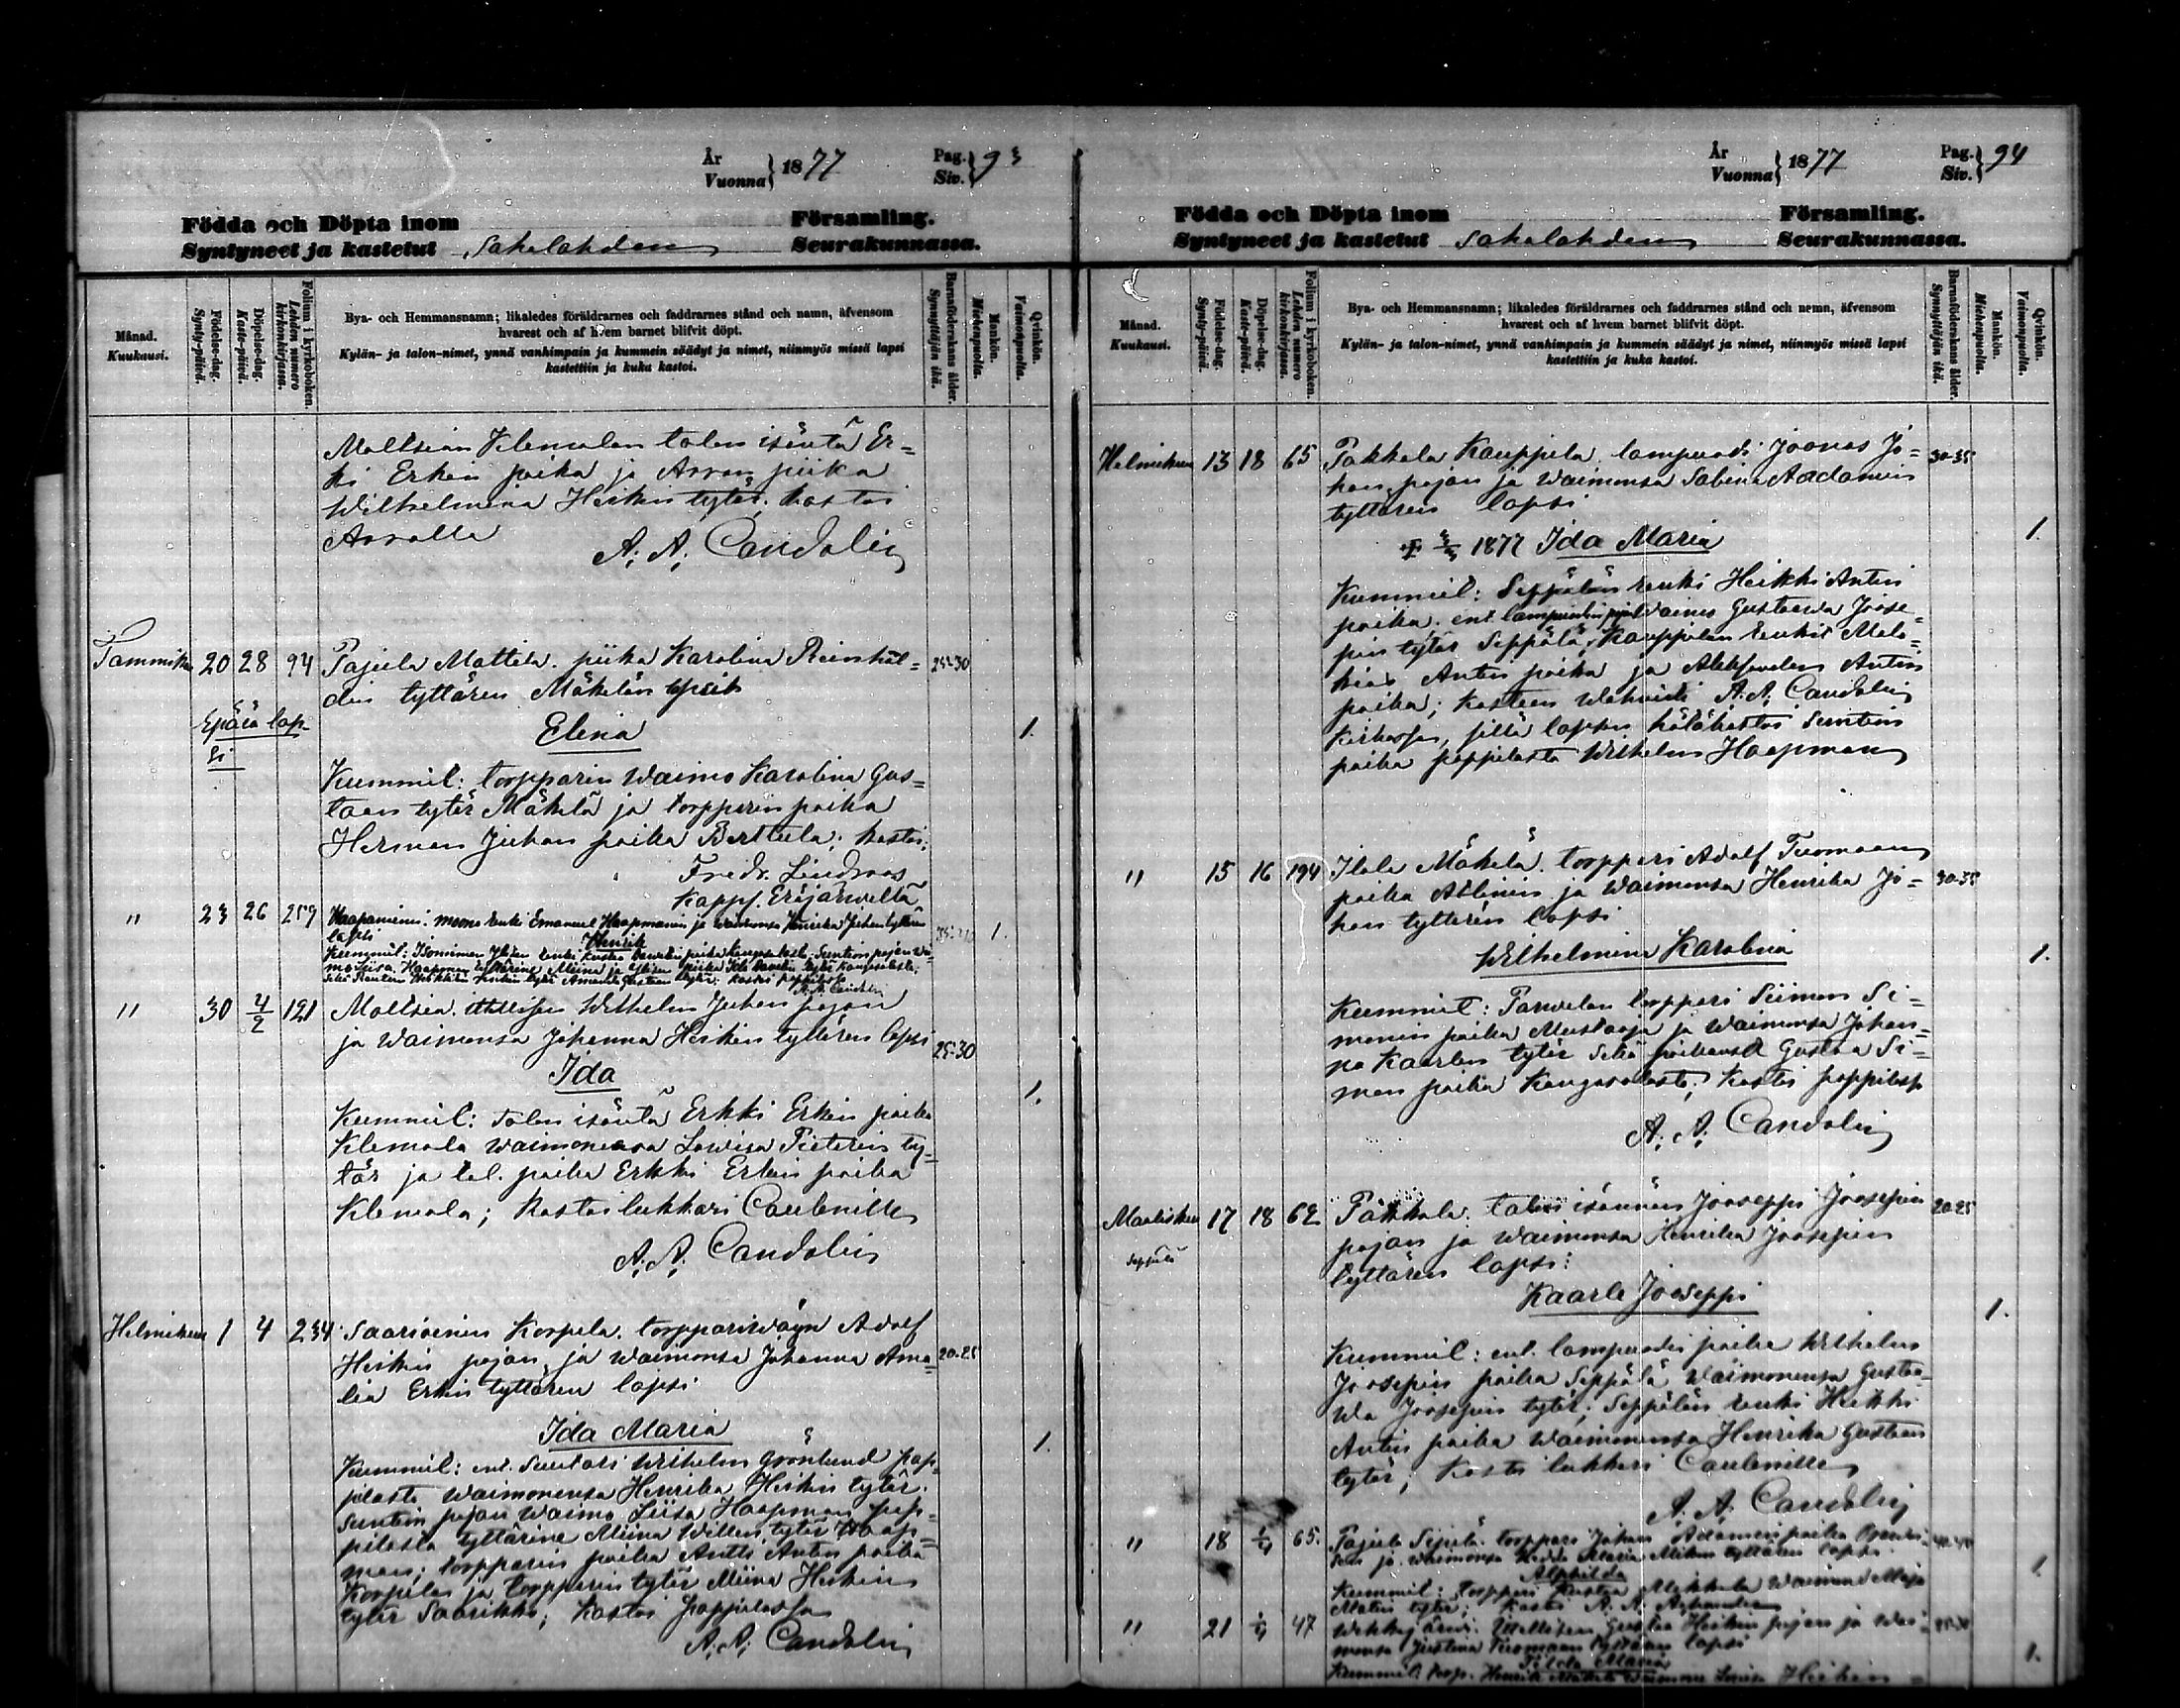 År
Vuonna } 1877
Pag.
Siv. } 93
Födda och Döpta inom Församling.
Syntyneet ja kastetut Sahalahden Seurakunnassa.
Månad.
Kuukausi.
Födelse-dag.
Synty-päivä.
Döpelse-dag.
Kaste-päivä.
Folium i kyrkoboken.
Lehden numero
kirkonkirjassa.
Bya- och Hemmansnamn; likaledes föräldrarnes och faddrarnes stånd och namn, äfvensom
hvarest och af hvem barnet blifvit döpt.
Kylän- ja talon-nimet, ynnä vanhimpain ja kummein säädyt ja nimet, niinmyös missä lapsi
kastettiin ja kuka kastoi.
Barnaföderskans ålder.
Synnyttäjän ikä.
Mankön.
Miehenpuolta.
Qvinkön.
Vaimonpuolta.
Moltsian Klemolan talon isäntä Er=
ki Erkin poika ja Arvon piika
Wilhelmina Heikin tytär; kastoi
Arvolla
A. A. Candolin
Tammikuu 20 28 94 Pajula Mattila. piika Karolina Reinhol= 25-30
din tyttären Mäkelän
Epärä lap-
si
Elena 1.
Kummit: torpparin Waimo Karolina Gus=
taan tytär Mäkelä ja torpparin poika
Herman Juhan poika Berttula; kastoi;
Fredr. Lindroos
Kappl. Eräjärveltä
" 23 26 259 Haapaniemi. renki Emanuel Haapmanin ja waimonsa Henrika Juhan tyttären 1.
lapsi
Henrik
" 30 4/2 121 Moltsia. Wilhelm Juhan pojan
ja Waimonsa Johanna Heikin tyttären lapsi 25-30
Ida 1.
Kummit: talon isäntä Erkki Erkin poika
Klemola waimonensa Lowisa Pieterin ty=
tär ja tal. poika Erkki Erkin poika
Klemola; Kastoi lukkari Caulenille
A. A. Candolin
Helmikuu 1 4 234 Saarioinen Korpela. torpparivävyn Adolf
Heikin pojan ja Waimonsa Johanna Ama= 20-25
lia Erkin tyttären lapsi
Ida Maria 1.
Kummit: ent. Suntari Wilhelm Grönlund pap=
pilasta Waimonensa Henrika Heikin tytär.
Suntin pojan Waimo Liisa Haapman pap=
pilasta tyttärine Miina Willen tytär Haap=
man; torpparin poika Antti Antin poika
Korpelas ja torpparin tytär Miina Heikin
tytär Saarikko; Kastoi pappilassa
A. A. Candolin
År
Vuonna } 1877
Pag.
Siv. } 94
Födda och Döpta inom Församling.
Syntyneet ja kastetut Sahalahden Seurakunnassa.
Månad.
Kuukausi.
Födelse-dag.
Synty-päivä.
Döpelse-dag.
Kaste-päivä.
Folium i kyrkoboken.
Lehden numero
kirkonkirjassa.
Bya- och Hemmansnamn; likaledes föräldrarnes och faddrarnes stånd och nemn, äfvensom
hvarest och af hvem barnet blifvit döpt.
Kylän- ja talon-nimet, ynnä vanhimpain ja kummein säädyt ja nimet, niinmyös missä lapsi
kastettiin ja kuka kastoi.
Barnaföderskans ålder.
Synnyttäjän ikä.
Mankön.
Miehenpuolta.
Qvinkön.
Vaimonpuolta.
Helmikuu 13 18 65 Pakkala Kauppila lampuodi Joonas Jo= 30-35
han pojan ja Waimonsa Sabina Aadamin
tyttären lapsi
1877 Ida Maria 1.
Kummit: Seppälän renki Heikki Antin
poika. ent. lampuodin Waimo Gustaava Joose=
pin tytär Seppälä, Kauppilan renkit Mala=
kias Antin poika ja Aleksander Antin
poika; Kasteen Wahvisti A. A. Candolin
Kirkossa, sillä lapsen hätäkastoi Suntion
poika pappilasta Wilhelm Haapman
" 15 16 194 Ilola Mäkelä. torppari Adolf Tuomaan 30-35
poika ja Waimonsa Henrika Jo=
han tyttären lapsi
Wilhelmina Karolina 1.
Kummit: Parvelan torppari Siimon Si=
monin poika Mustaoja ja Waimonsa Johan=
na Kaarlen tytär Sekä poikansa Gustaa Si=
mon poika Kangasalasta; Kastoi pappilassa
A. A. Candolin
Maaliskuu 17 18 62 Pakkala. talon isännän Jooseppi Joosepin 20-25
Seppälä
pojan ja Waimonsa Henrika Joosepin
tyttären lapsi:
Kaarle Jooseppi 1.
Kummit: ent. lampuodin poika Wilhelm
Joosepin poika Seppälä Waimonensa Gustaa=
wa Joosepin tytär; Seppälän renki Heikki
Antin poika Waimonensa Henrika Gustaan
tytär; Kastoi lukkari Caulenille
A. A. Candolin
" 18 65. Pajula torppari Johan Adamin poika
ja waimonsa Hedda Maria tyttären lapsi 1.
Alphilda
Kummit: torppari Kustaa Mikkola Waimo Maja
Matin tytär; Kastoi A. A.
" 21 47 Gustaa Heikin pojan ja Wai=
monsa Justina Tuomaan tyttären lapsi 1.
Maria
Kummit: torp. Henrik Mäkelä Waimo Heikin